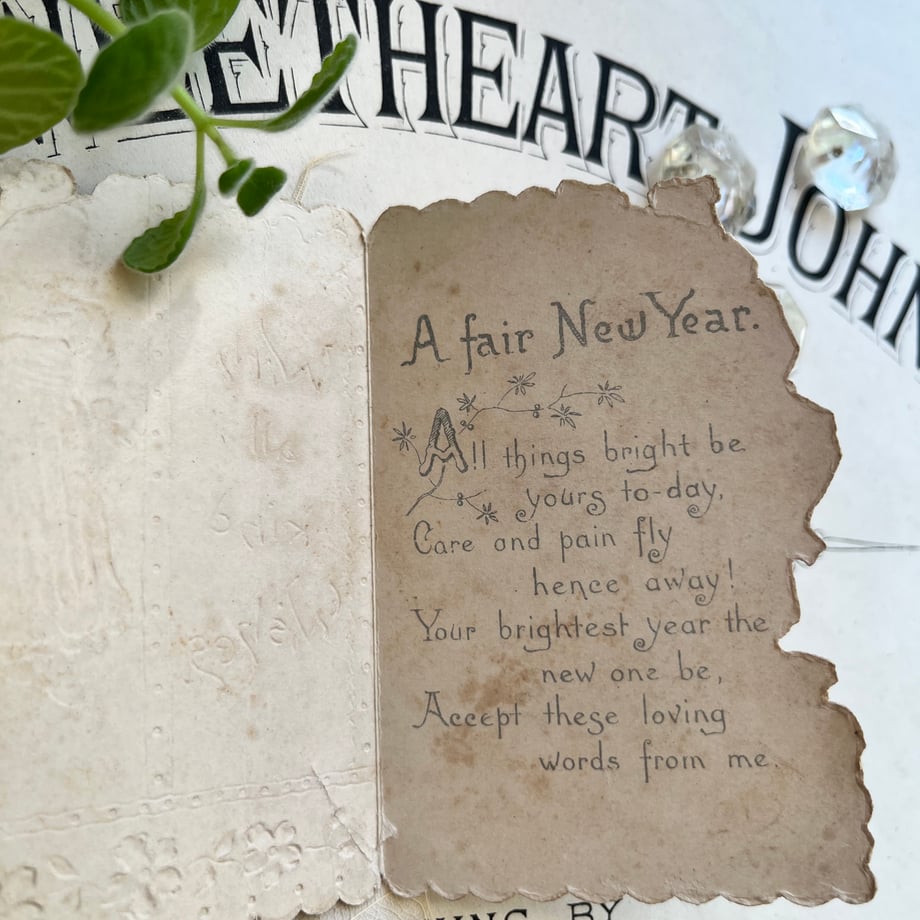 EETHEART JOHN
A fair New Year.
All things bright be
yours to-day,
Care and pain fly
hence away!
Your brightest year the
new one be,
Accept these loving
words from me.
UNG BY